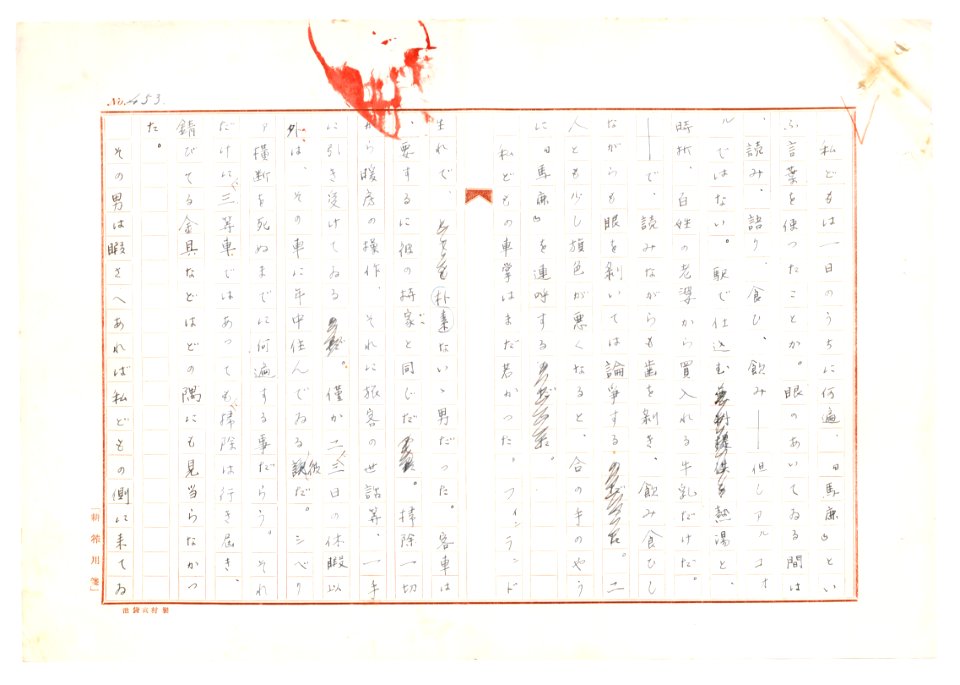 No. 53.
私どもは一日のうちに何遍、『馬鹿』とい
ふ言葉を使つたことか。眼のあいてゐる間は
、読み、語り、食ひ、飲み——但しアルコオ
ルではない。駅で仕込む熱湯と、
時折、百姓の老婆から買入れる牛乳だけだ。
——で、読みながらも歯を剥き、飲み食ひし
ながらも眼を剥いては論争する。二
人とも少し旗色が悪くなると、合の手のやう
に『馬鹿』を連呼する。
私どもの車掌はまだ若かつた。フィンランド
生れで、朴素ないゝ男だつた。客車は
、要するに彼の持家と同じだ。掃除一切
から暖房の操作、それに旅客の世話等、一手
に引き受けてゐる。僅か二、三日の休暇以
外は、その車に年中住んでゐる訳だ。シベリ
ア横断を死ぬまでに何遍する事だらう。それ
だけに、三等車ではあつても、掃除は行き届き、
錆びてる金具などはどの隅にも見当らなかつ
た。
その男は暇さへあれば私どもの側に来てゐ